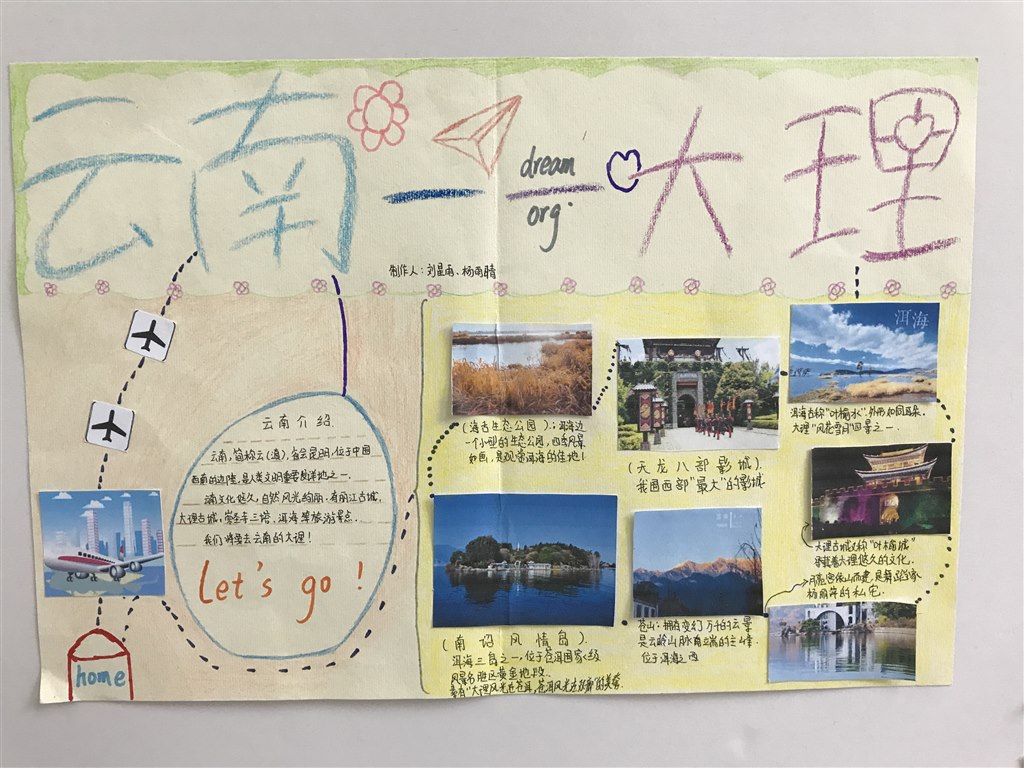 云南——大理
dream
org.
制作人：刘星雨、杨雨晴
云南介绍
云南，简称云(滇)，省会昆明，位于中国
西南的边陲，是人类文明重要发祥地之一。
滇文化悠久，自然风光绚丽，有丽江古城，
大理古城，崇圣寺三塔、洱海等旅游景点。
我们将要去云南的大理！
Let's go!
home
(海舌生态公园)：洱海边
一个小型的生态公园，四季风景
如画，是观赏洱海的佳地！
(天龙八部影城)
我国西部"最大"的影城.
洱海
洱海古称"叶榆水"，外形如同耳朵.
大理"风花雪月"四景之一.
大理古城又称"叶榆城"
承载着大理悠久的文化.
月亮宫依山而建，是舞蹈家
杨丽萍的私宅.
(南诏风情岛)
洱海三岛之一，位于苍洱国家级
风景名胜区黄金地段.
素有"大理风光在苍洱，苍洱风光在双廊"的美誉.
苍山：拥有变幻万千的云景
是云岭山脉南端的主峰.
位于洱海之西